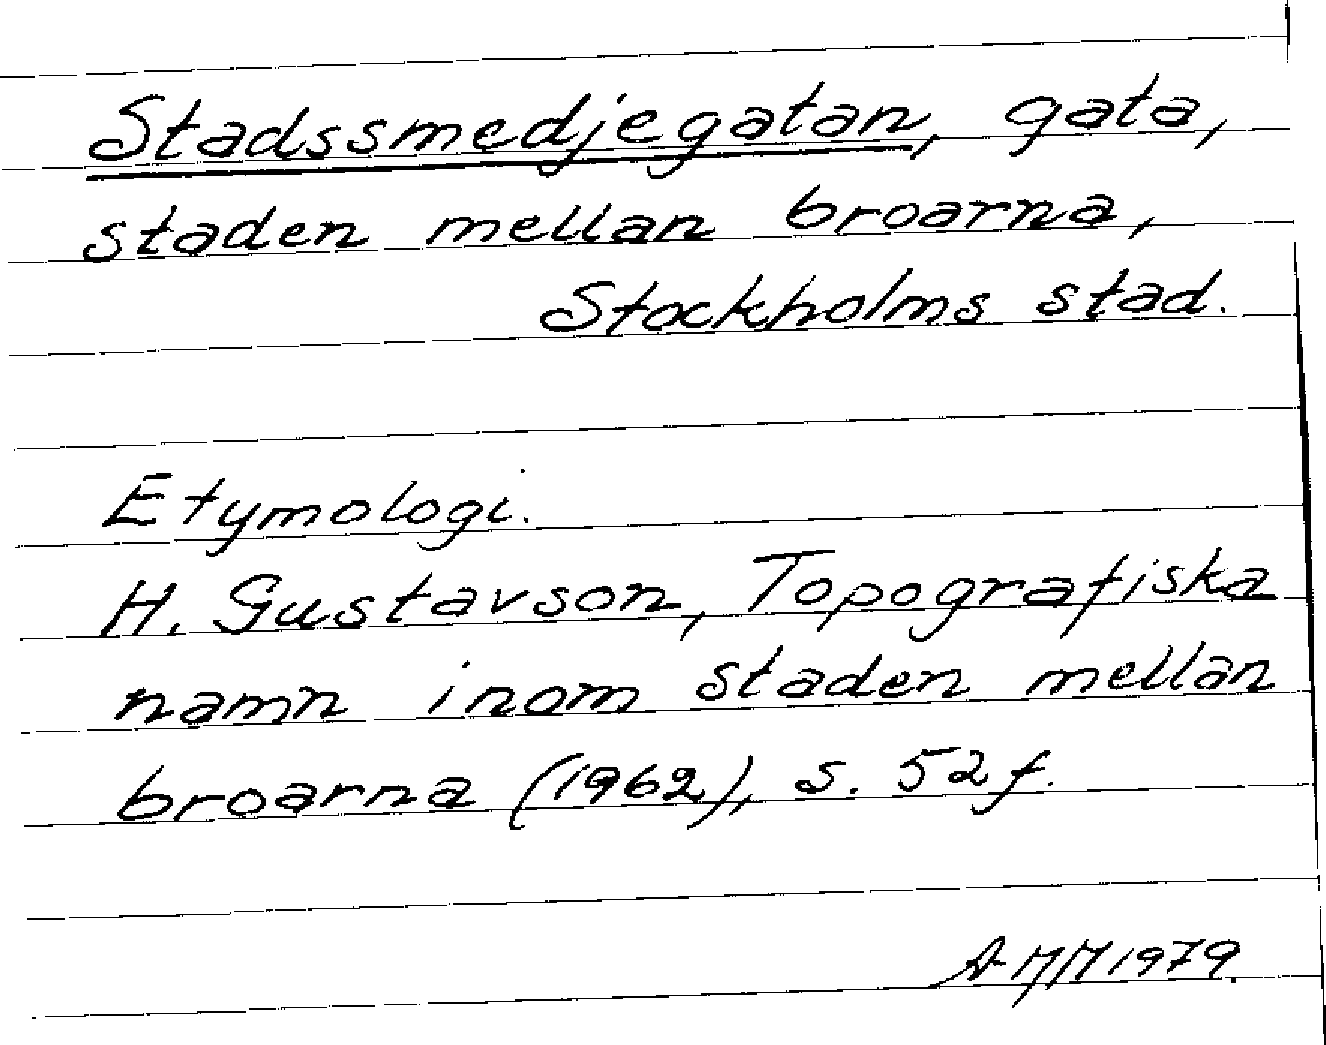 Stadssmedjegatan, gata,
staden mellan broarna,
Stockholms stad.
Etymologi.
H. Gustavson, Topografiska
namn inom staden mellan
broarna (1962), s. 52 f.
AMM 1979.